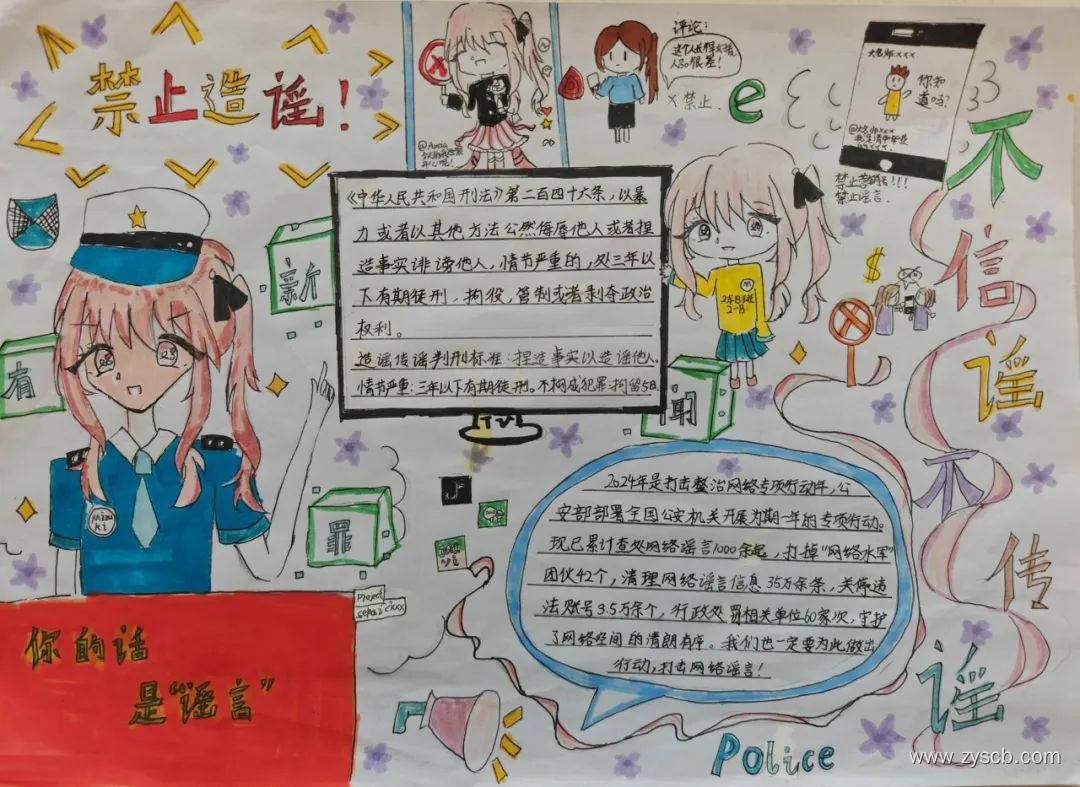 禁止造谣!
评论:
这个人长得好看,
人品很差!
×禁止.
e
大名师.xxx
你知
道吗?
@大名师xxx
禁止营销号!!!
禁止谣言.
不信谣不传谣
《中华人民共和国刑法》第二百四十六条,以暴
力或者以其他方法公然侮辱他人或者捏
造事实诽谤他人,情节严重的,处三年以
下有期徒刑、拘役,管制或者剥夺政治
权利。
造谣传谣判刑标准:捏造事实以造谣他人.
情节严重:三年以下有期徒刑。不构成犯罪:拘留5日
TV
新
有
闻
罪
$
2024年是打击整治网络专项行动年,公
安部部署全国公安机关开展为期一年的专项行动。
现已累计查处网络谣言1000余起,打掉“网络水军”
团伙42个,清理网络谣言信息35万余条,关停违
法账号3.5万余个,行政处罚相关单位60家次,守护
了网络空间的清朗有序。我们也一定要为此做出
行动,打击网络谣言!
Project
你的话
是“谣言”
Police
www.zyscb.com